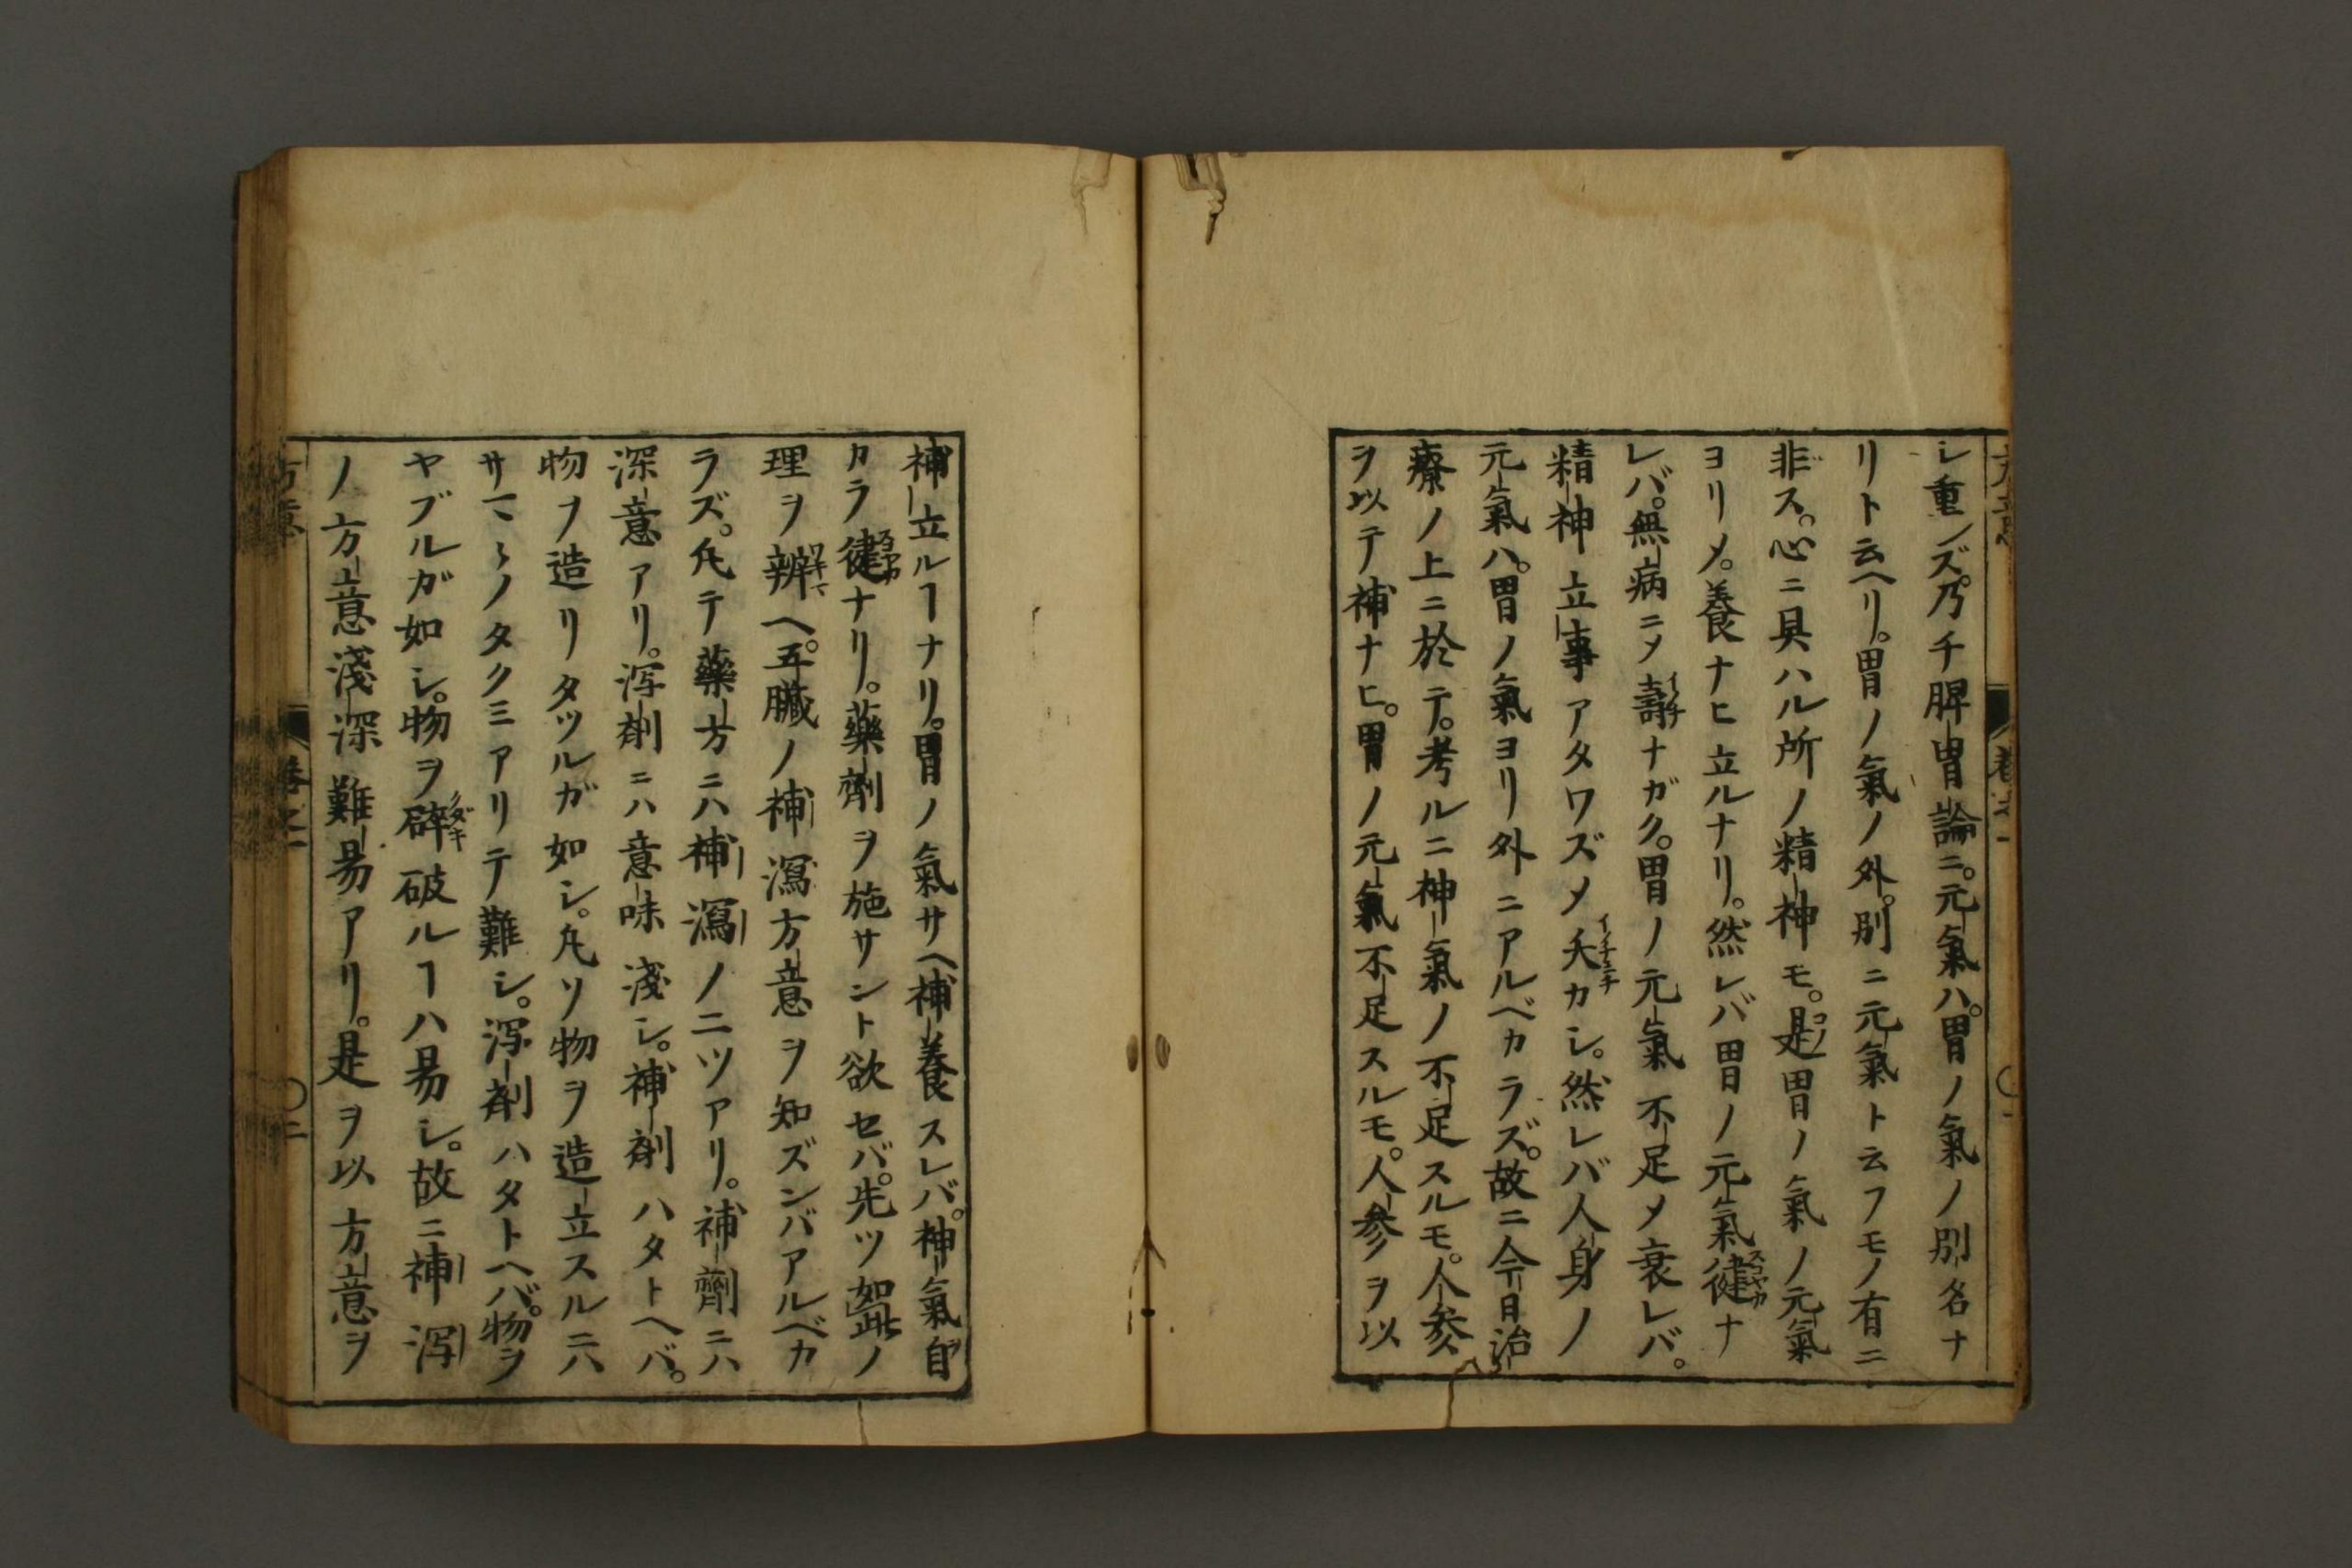 シ重ンズ。乃チ脾胃論ニ。元氣ハ。胃ノ氣ノ別名ナ
リト云ヘリ。胃ノ氣ノ外。別ニ元氣ト云フモノ有ニ
非ス。心ニ具ハル所ノ精神モ。是コノ胃ノ氣ノ元氣
ヨリメ。養ナヒ立ルナリ。然レバ胃ノ元氣健スコヤカナ
レバ。無病ニメ壽イノチナガク。胃ノ元氣不足メ衰レバ。
精神立事アタワズメ夭イノチミチカシ。然レバ人身ノ
元氣ハ。胃ノ氣ヨリ外ニアルベカラズ。故ニ今日治
療ノ上ニ於テ。考ルニ神氣ノ不足スルモ。人参
ヲ以テ補ナヒ。胃ノ元氣不足スルモ。人参ヲ以
補立ルヿナリ。胃ノ氣サヘ補養スレバ。神氣自
カラ健スコヤカナリ。藥劑ヲ施サント欲セバ。先ツ如此ノ
理ヲ辨ワキマヘ。五臓ノ補瀉方意ヲ知ズンバアルベカ
ラズ。凡テ藥方ニハ補瀉ノ二ツアリ。補劑ニハ
深意アリ。泻剤ニハ意味淺シ。補剤ハタトヘバ。
物ヲ造リタツルガ如シ。凡ソ物ヲ造立スルニハ
サマ〻ノタクミアリテ難シ。泻剤ハタトヘバ。物ヲ
ヤブルガ如シ。物ヲ碎クダキ破ルヿハ易シ。故ニ補泻
ノ方意淺深難易アリ。是ヲ以方意ヲ
方意 卷之一 〇二